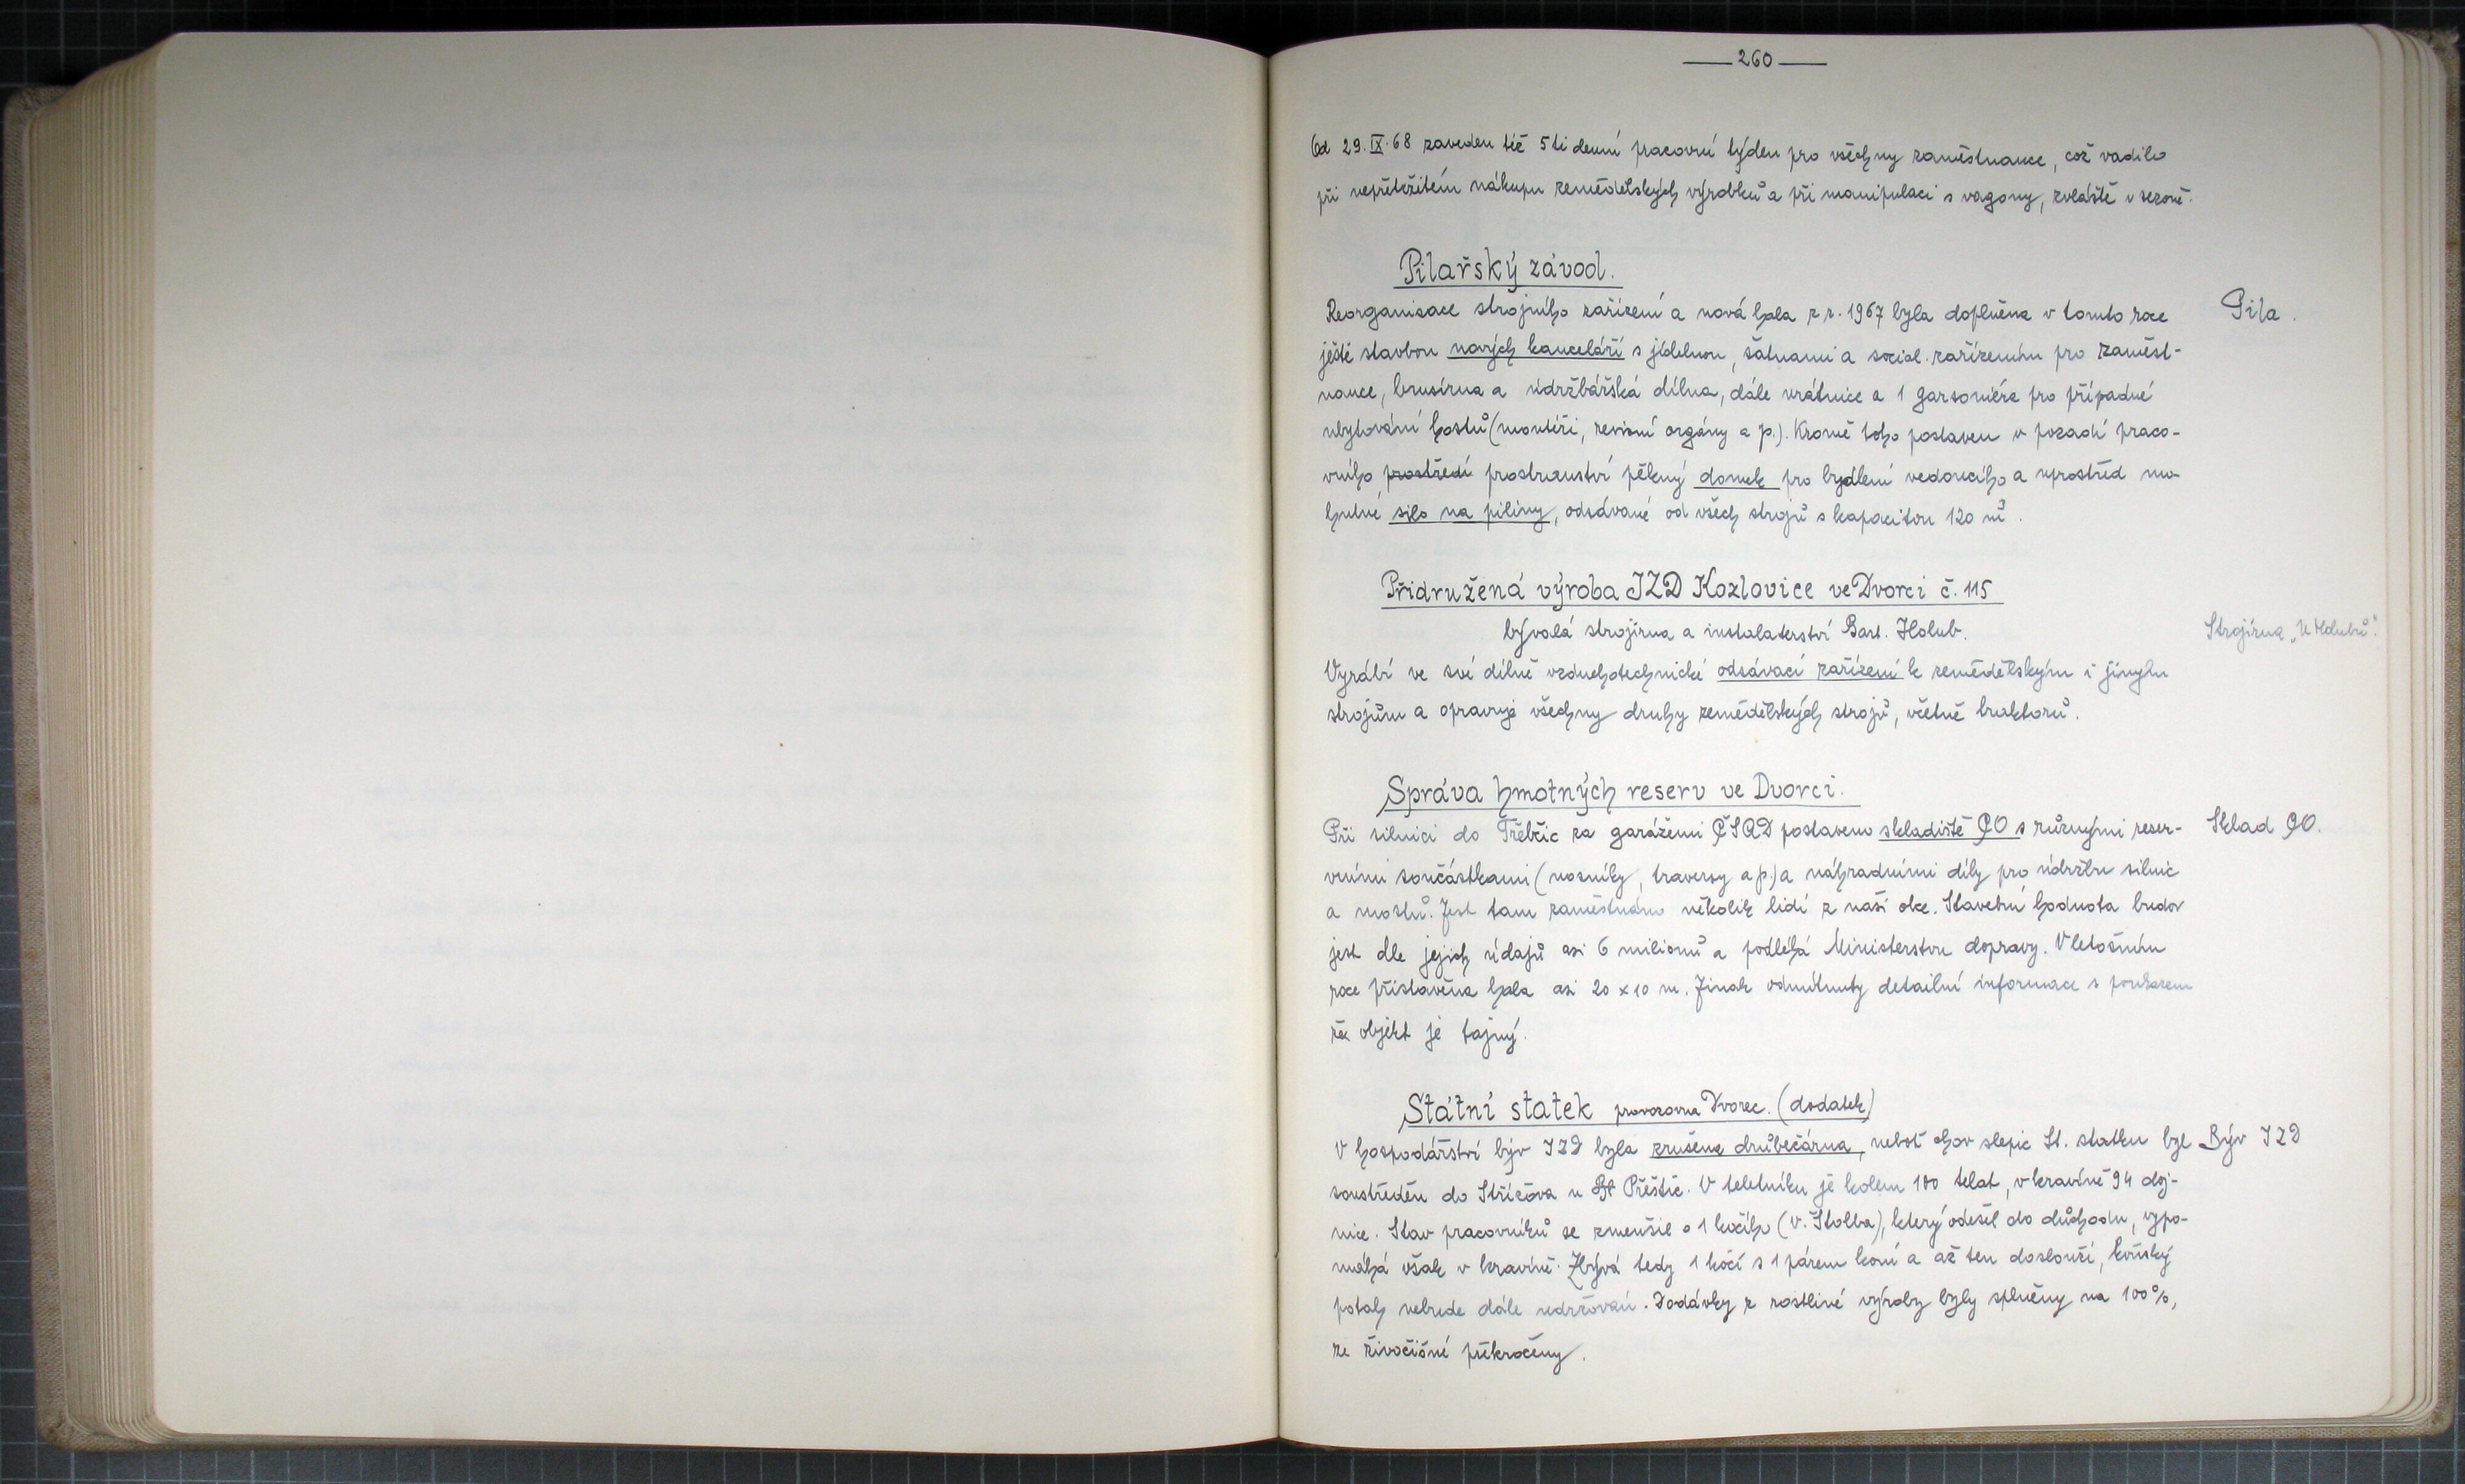 — 260 —
Od 29. IX. 68 zaveden též 5ti denní pracovní týden pro všechny zaměstnance, což vadilo
při nepřetržitém nákupu zemědělských výrobků a při manipulaci s vagony, zvláště v sezoně.
Pilařský závod.
Reorganisace strojního zařízení a nová hala z r. 1967 byla doplněna v tomto roce
Pila.
ještě stavbou nových kanceláří s jídelnou, šatnami a social. zařízením pro zaměst-
nance, brusírna a údržbářská dílna, dále vrátnice a 1 garsoniéra pro případné
ubytování hostů (montéři, revisní orgány a p.). Kromě toho postaven v pozadí praco-
vního prostředí prostranství pěkný domek pro bydlení vedoucího a uprostřed mo-
hutné silo na piliny, odsávané od všech strojů s kapacitou 120 m³.
Přidružená výroba JZD Kozlovice ve Dvorci č. 115
bývalá strojírna a instalaterství Bart. Holub.
Strojírna „U Holubů".
Vyrábí ve své dílně vzduchotechnické odsávací zařízení k zemědělským i jiným
strojům a opravuje všechny druhy zemědělských strojů, včetně traktorů.
Správa hmotných reserv ve Dvorci.
Při silnici do Třebčic za garážemi ČSAD postaveno skladiště CO s různými reser-
Sklad CO.
vními součástkami (nosníky, traversy a p.) a náhradními díly pro údržbu silnic
a mostů. Jest tam zaměstnáno několik lidí z naší obce. Stavební hodnota budov
jest dle jejich údajů asi 6 milionů a podléhá Ministerstvu dopravy. V letošním
roce přistavěna hala asi 20 x 10 m. Jinak odmítnuty detailní informace s poukazem
že objekt je tajný.
Státní statek provozovna Dvorec. (dodatek)
V hospodářství býv JZD byla zrušena drůbežárna, neboť chov slepic St. statku byl
Býv JZD
soustředěn do Střížova u Přeštic. V teletníku je kolem 100 telat, v kravíně 94 doj-
nice. Stav pracovníků se zmenšil o 1 kočího (V. Štolba), který odešel do důchodu, vypo-
máhá však v kravíně. Zbývá tedy 1 kočí s 1 párem koní a až ten doslouží, koňský
potah nebude dále udržován. Dodávky z rostliné výroby byly splněny na 100%,
ze živočišné překročeny.